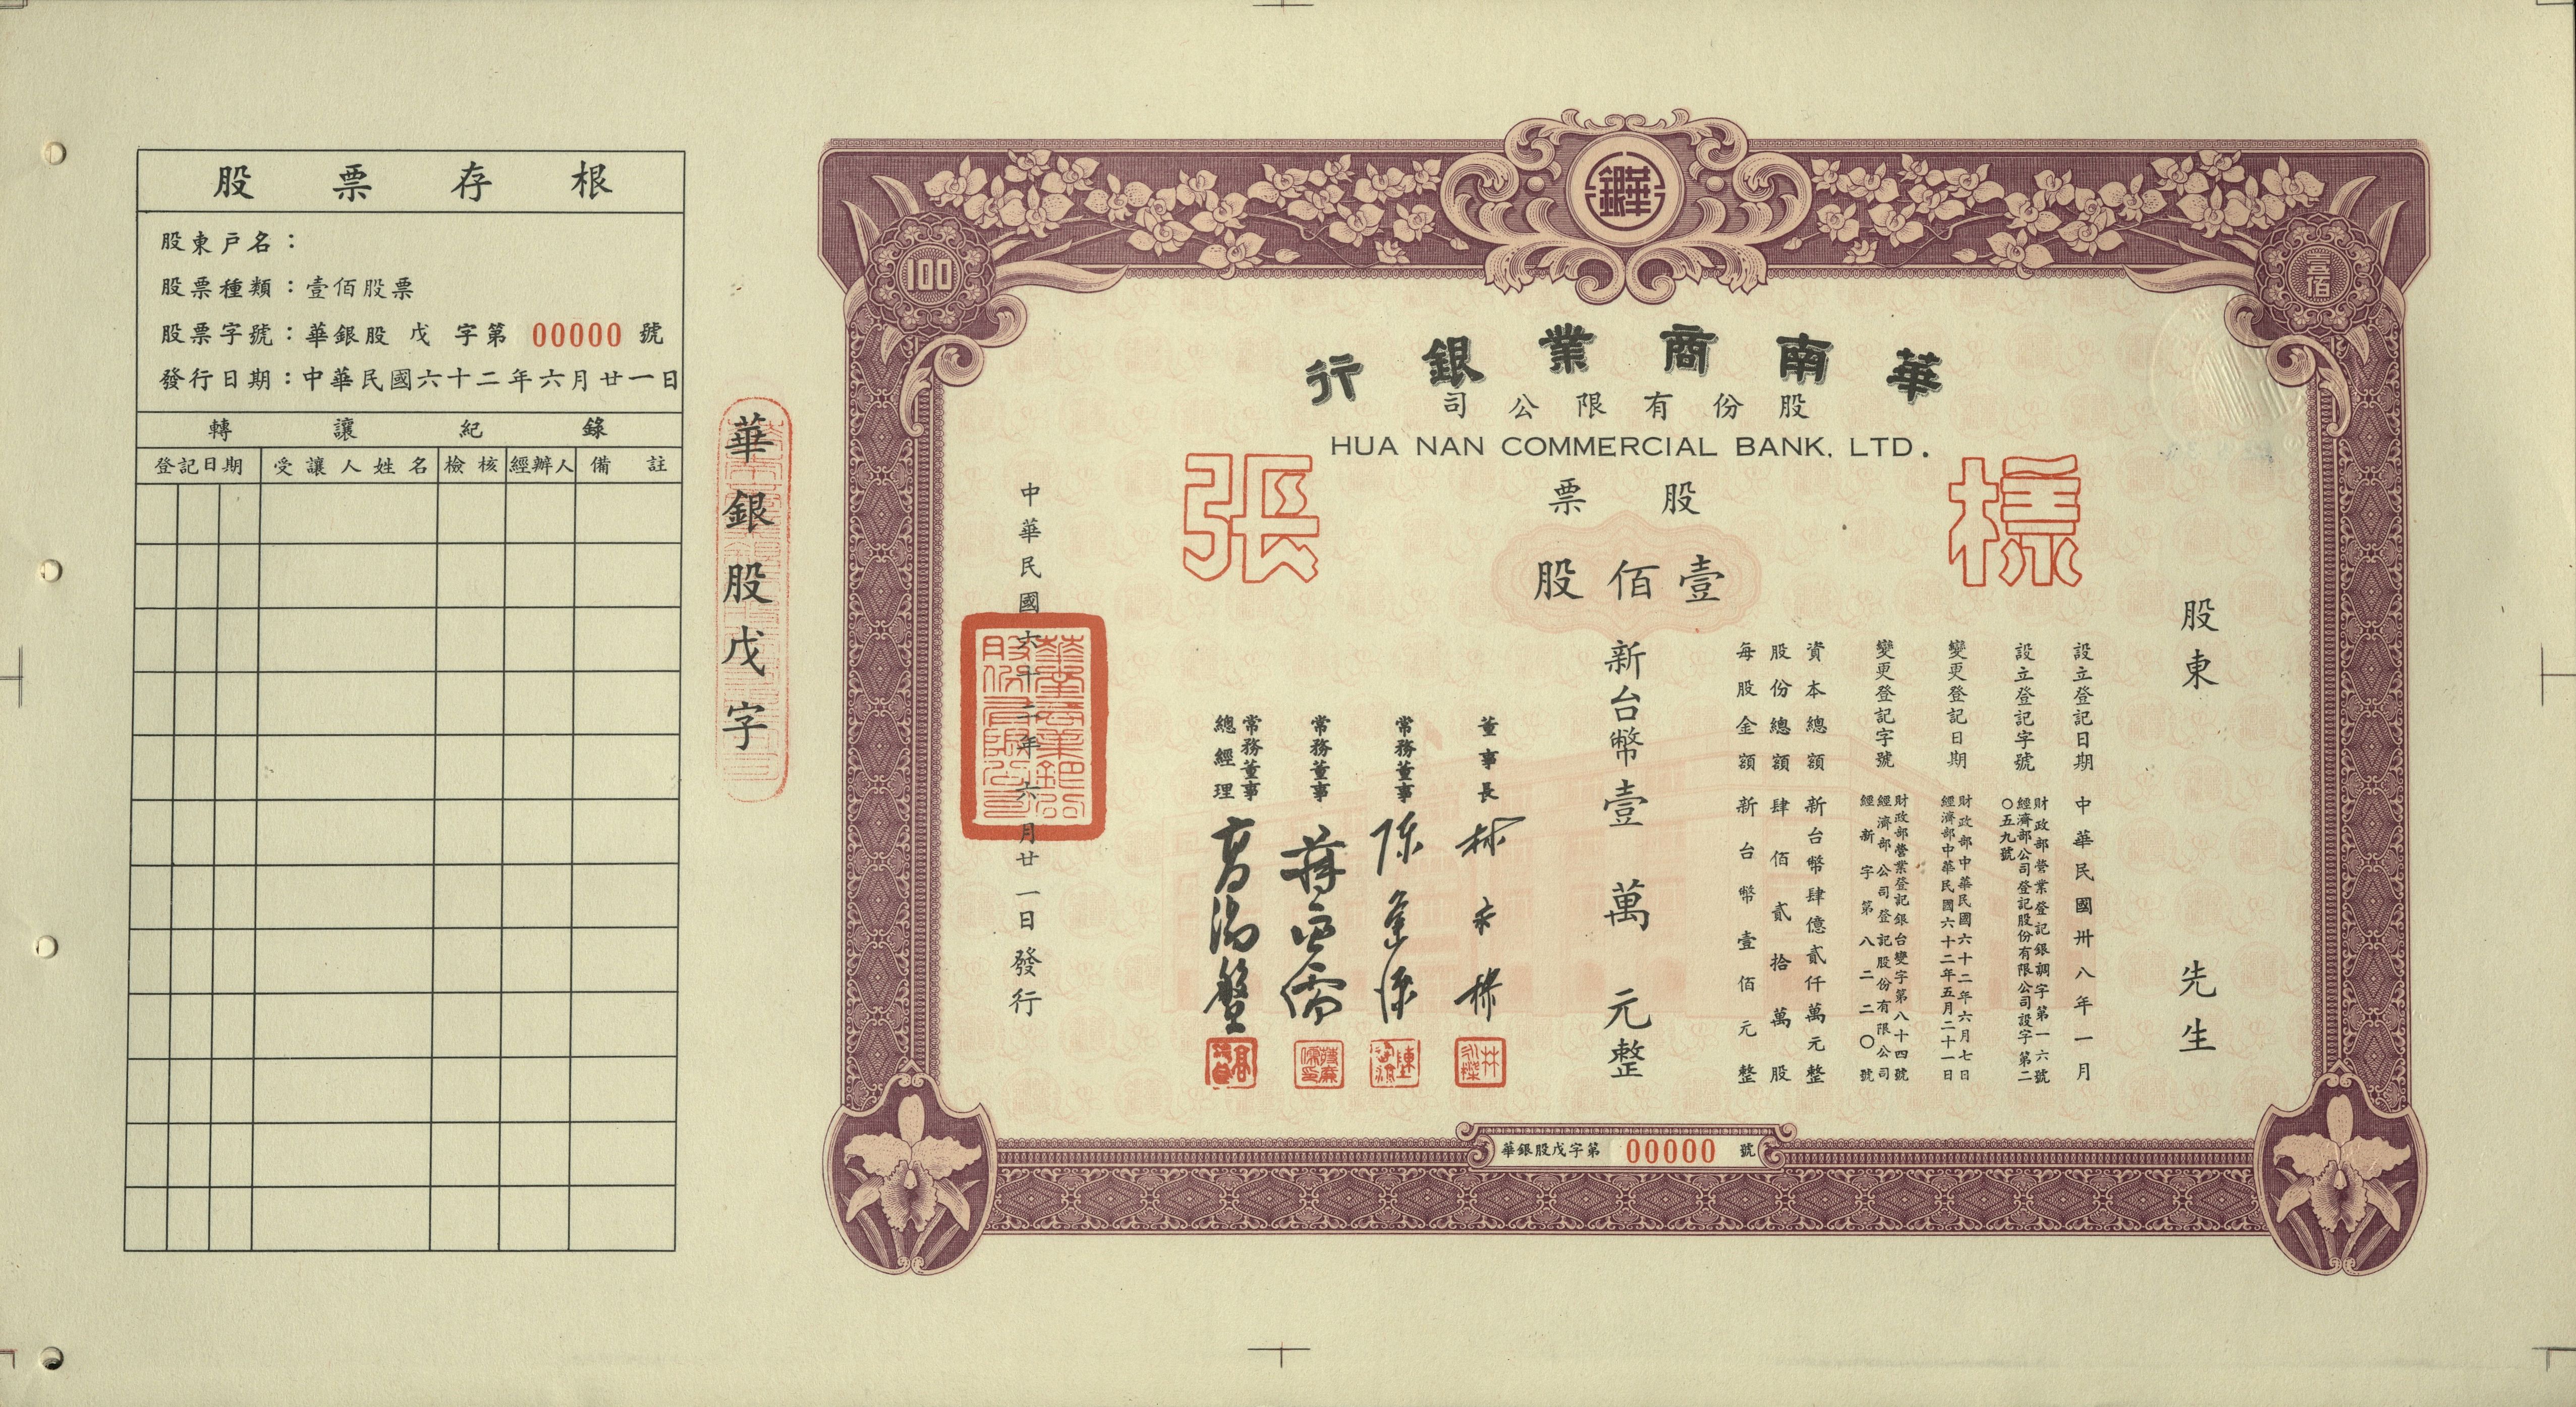 股票存根
股東戶名：
股票種類：壹佰股票
股票字號：華銀股 戊 字第 00000 號
發行日期：中華民國六十二年六月廿一日
轉讓紀錄
登記日期 受讓人姓名 檢核 經辦人 備註
華銀股戊字
100
壹佰
華南商業銀行
股份有限公司
HUA NAN COMMERCIAL BANK, LTD.
股票
樣張
壹佰股
股東 先生
設立登記日期 中華民國卅八年一月
設立登記字號 財政部營業登記銀調字第一六號
經濟部公司登記股份有限公司設字第二
〇五九號
變更登記日期 財政部中華民國六十二年六月七日
經濟部中華民國六十二年五月二十一日
變更登記字號 財政部營業登記銀台變字第八十四號
經濟部公司登記股份有限公司
經新字第八二二〇號
資本總額 新台幣肆億貳仟萬元整
股份總額 肆佰貳拾萬股
每股金額 新台幣壹佰元整
新台幣壹萬元整
董事長 林永樑
常務董事
常務董事
常務董事
總經理
中華民國六十二年六月廿一日發行
華銀股戊字第 00000 號